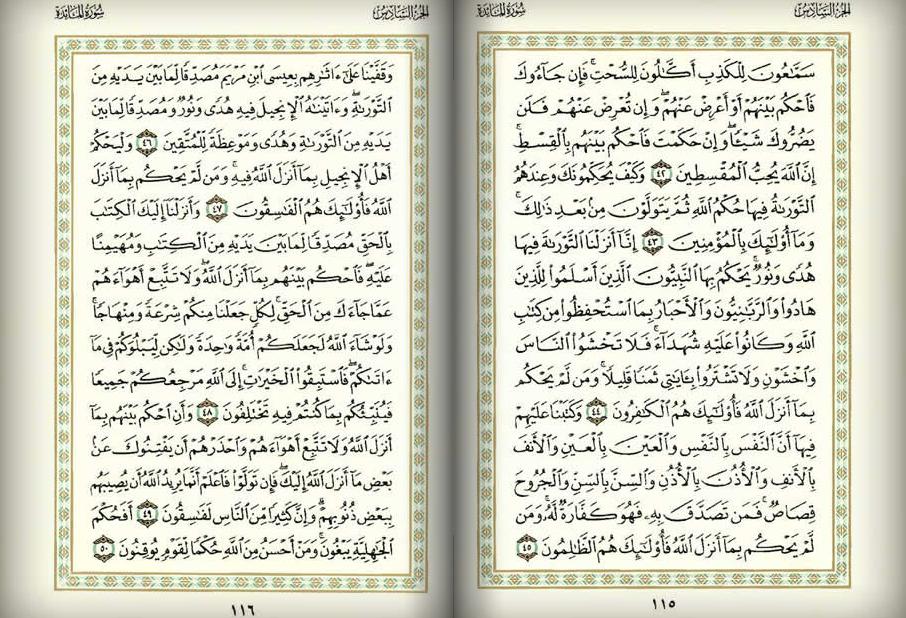 الجزء السادس
سورة المائدة
سَمَّٰعُونَ لِلۡكَذِبِ أَكَّٰلُونَ لِلسُّحۡتِۚ فَإِن جَآءُوكَ
فَٱحۡكُم بَيۡنَهُمۡ أَوۡ أَعۡرِضۡ عَنۡهُمۡۖ وَإِن تُعۡرِضۡ عَنۡهُمۡ فَلَن
يَضُرُّوكَ شَيۡـٔٗاۖ وَإِنۡ حَكَمۡتَ فَٱحۡكُم بَيۡنَهُم بِٱلۡقِسۡطِۚ
إِنَّ ٱللَّهَ يُحِبُّ ٱلۡمُقۡسِطِينَ ٤٢ وَكَيۡفَ يُحَكِّمُونَكَ وَعِندَهُمُ
ٱلتَّوۡرَىٰةُ فِيهَا حُكۡمُ ٱللَّهِ ثُمَّ يَتَوَلَّوۡنَ مِنۢ بَعۡدِ ذَٰلِكَۚ
وَمَآ أُوْلَٰٓئِكَ بِٱلۡمُؤۡمِنِينَ ٤٣ إِنَّآ أَنزَلۡنَا ٱلتَّوۡرَىٰةَ فِيهَا
هُدٗى وَنُورٞۚ يَحۡكُمُ بِهَا ٱلنَّبِيُّونَ ٱلَّذِينَ أَسۡلَمُواْ لِلَّذِينَ
هَادُواْ وَٱلرَّبَّٰنِيُّونَ وَٱلۡأَحۡبَارُ بِمَا ٱسۡتُحۡفِظُواْ مِن كِتَٰبِ
ٱللَّهِ وَكَانُواْ عَلَيۡهِ شُهَدَآءَۚ فَلَا تَخۡشَوُاْ ٱلنَّاسَ
وَٱخۡشَوۡنِ وَلَا تَشۡتَرُواْ بِـَٔايَٰتِي ثَمَنٗا قَلِيلٗاۚ وَمَن لَّمۡ يَحۡكُم
بِمَآ أَنزَلَ ٱللَّهُ فَأُوْلَٰٓئِكَ هُمُ ٱلۡكَٰفِرُونَ ٤٤ وَكَتَبۡنَا عَلَيۡهِمۡ
فِيهَآ أَنَّ ٱلنَّفۡسَ بِٱلنَّفۡسِ وَٱلۡعَيۡنَ بِٱلۡعَيۡنِ وَٱلۡأَنفَ
بِٱلۡأَنفِ وَٱلۡأُذُنَ بِٱلۡأُذُنِ وَٱلسِّنَّ بِٱلسِّنِّ وَٱلۡجُرُوحَ
قِصَاصٞۚ فَمَن تَصَدَّقَ بِهِۦ فَهُوَ كَفَّارَةٞ لَّهُۥۚ وَمَن
لَّمۡ يَحۡكُم بِمَآ أَنزَلَ ٱللَّهُ فَأُوْلَٰٓئِكَ هُمُ ٱلظَّٰلِمُونَ ٤٥
١١٥
الجزء السادس
سورة المائدة
وَقَفَّيۡنَا عَلَىٰٓ ءَاثَٰرِهِم بِعِيسَى ٱبۡنِ مَرۡيَمَ مُصَدِّقٗا لِّمَا بَيۡنَ يَدَيۡهِ مِنَ
ٱلتَّوۡرَىٰةِۖ وَءَاتَيۡنَٰهُ ٱلۡإِنجِيلَ فِيهِ هُدٗى وَنُورٞ وَمُصَدِّقٗا لِّمَا بَيۡنَ
يَدَيۡهِ مِنَ ٱلتَّوۡرَىٰةِ وَهُدٗى وَمَوۡعِظَةٗ لِّلۡمُتَّقِينَ ٤٦ وَلۡيَحۡكُمۡ
أَهۡلُ ٱلۡإِنجِيلِ بِمَآ أَنزَلَ ٱللَّهُ فِيهِۚ وَمَن لَّمۡ يَحۡكُم بِمَآ أَنزَلَ
ٱللَّهُ فَأُوْلَٰٓئِكَ هُمُ ٱلۡفَٰسِقُونَ ٤٧ وَأَنزَلۡنَآ إِلَيۡكَ ٱلۡكِتَٰبَ
بِٱلۡحَقِّ مُصَدِّقٗا لِّمَا بَيۡنَ يَدَيۡهِ مِنَ ٱلۡكِتَٰبِ وَمُهَيۡمِنًا
عَلَيۡهِۖ فَٱحۡكُم بَيۡنَهُم بِمَآ أَنزَلَ ٱللَّهُۖ وَلَا تَتَّبِعۡ أَهۡوَآءَهُمۡ
عَمَّا جَآءَكَ مِنَ ٱلۡحَقِّۚ لِكُلّٖ جَعَلۡنَا مِنكُمۡ شِرۡعَةٗ وَمِنۡهَاجٗاۚ
وَلَوۡ شَآءَ ٱللَّهُ لَجَعَلَكُمۡ أُمَّةٗ وَٰحِدَةٗ وَلَٰكِن لِّيَبۡلُوَكُمۡ فِي مَآ
ءَاتَىٰكُمۡۖ فَٱسۡتَبِقُواْ ٱلۡخَيۡرَٰتِۚ إِلَى ٱللَّهِ مَرۡجِعُكُمۡ جَمِيعٗا
فَيُنَبِّئُكُم بِمَا كُنتُمۡ فِيهِ تَخۡتَلِفُونَ ٤٨ وَأَنِ ٱحۡكُم بَيۡنَهُم بِمَآ
أَنزَلَ ٱللَّهُ وَلَا تَتَّبِعۡ أَهۡوَآءَهُمۡ وَٱحۡذَرۡهُمۡ أَن يَفۡتِنُوكَ عَنۢ
بَعۡضِ مَآ أَنزَلَ ٱللَّهُ إِلَيۡكَۖ فَإِن تَوَلَّوۡاْ فَٱعۡلَمۡ أَنَّمَا يُرِيدُ ٱللَّهُ أَن يُصِيبَهُم
بِبَعۡضِ ذُنُوبِهِمۡۗ وَإِنَّ كَثِيرٗا مِّنَ ٱلنَّاسِ لَفَٰسِقُونَ ٤٩ أَفَحُكۡمَ
ٱلۡجَٰهِلِيَّةِ يَبۡغُونَۚ وَمَنۡ أَحۡسَنُ مِنَ ٱللَّهِ حُكۡمٗا لِّقَوۡمٖ يُوقِنُونَ ٥٠
١١٦